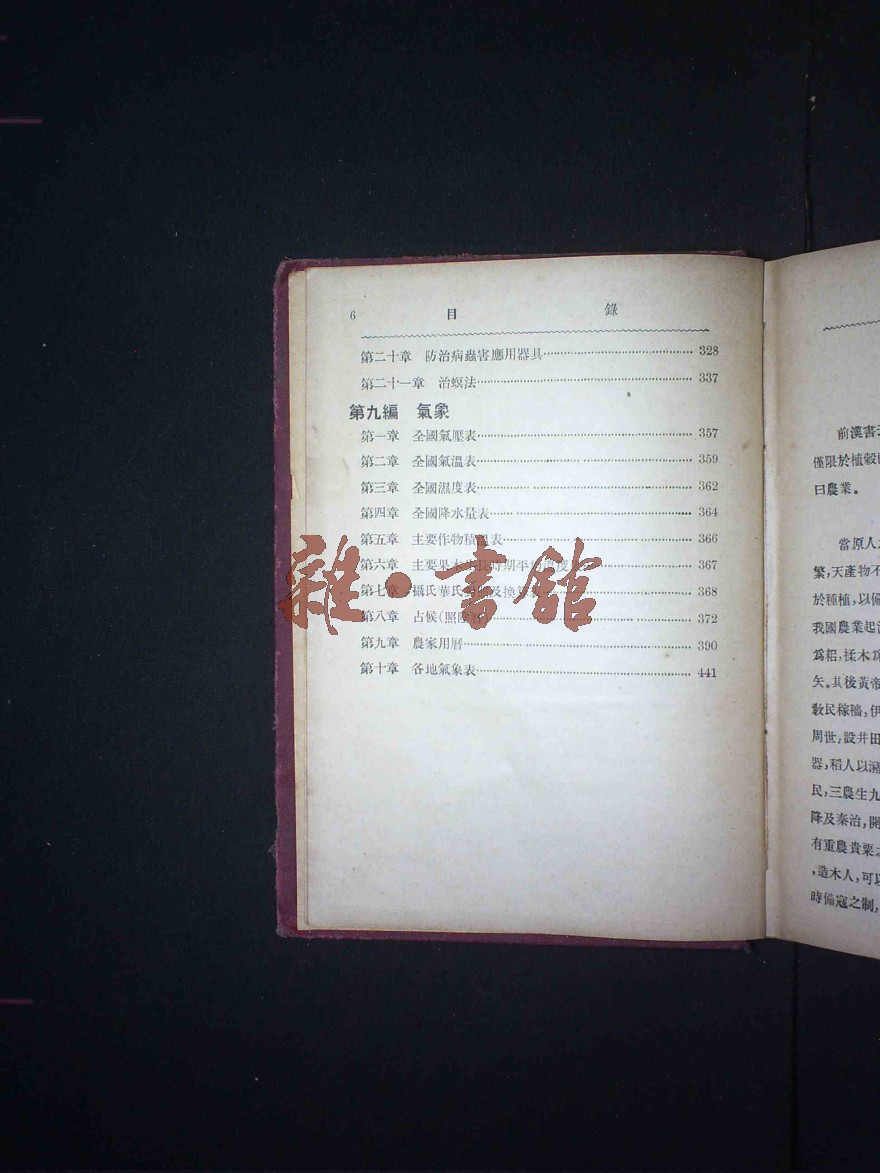 6 目 錄
第二十章 防治病蟲害應用器具 328
第二十一章 治螟法 337
第九編 氣象
第一章 全國氣壓表 357
第二章 全國氣溫表 359
第三章 全國濕度表 362
第四章 全國降水量表 364
第五章 主要作物積溫表 366
第六章 主要果木生長時期平均溫度 367
第七章 攝氏華氏 及換算 368
第八章 占候(照陰曆) 372
第九章 農家用曆 390
第十章 各地氣象表 441
雜·書館
前漢書
僅限於植穀
曰農業。
當原人
繁,天產物不
於種植,以備
我國農業起
爲耜,揉木爲
矢。其後黃帝
敎民稼穡,伊
周世,設井田
器,稻人以瀦
民,三農生九
降及秦治,開
有重農貴粟
,造木人,可以
時備寇之制,